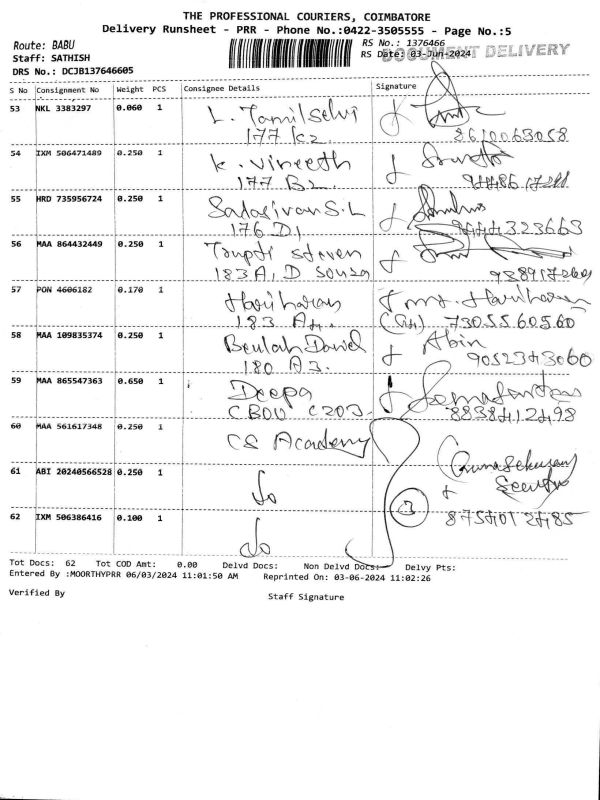 THE PROFESSIONAL COURIERS, COIMBATORE
Delivery Runsheet - PRR - Phone No.:0422-3505555 - Page No.:5
Route: BABU
RS No.: 1376466
Staff: SATHISH
RS Date: 03-Jun-2024
DOCUMENT DELIVERY
DRS No.: DCJB137646605
S No Consignment No Weight PCS Consignee Details Signature
53 NKL 3383297 0.060 1 L. Tamilselvi
177 K2. 8610063058
54 IXM 506471489 0.250 1 K. Vineeth
177 B2.
55 HRD 735956724 0.250 1 Sadasivan S.L
176 D1 9444323663
56 MAA 864432449 0.250 1 Steven
183 A, D Souza
57 PON 4606182 0.170 1 Hariharan mr. Hariharan
183 A4. 73055.60560
58 MAA 109835374 0.250 1 Beulah David Abin
180 A3. 9052343060
59 MAA 865547363 0.650 1 Deepa
C203. 8838412498
60 MAA 561617348 0.250 1 CS Academy
61 ABI 20240566528 0.250 1 do Gunasekaran
62 IXM 506386416 0.100 1 do 3 8754012485
Tot Docs: 62 Tot COD Amt: 0.00 Delvd Docs: Non Delvd Docs: Delvy Pts:
Entered By :MOORTHYPRR 06/03/2024 11:01:50 AM Reprinted On: 03-06-2024 11:02:26
Verified By
Staff Signature